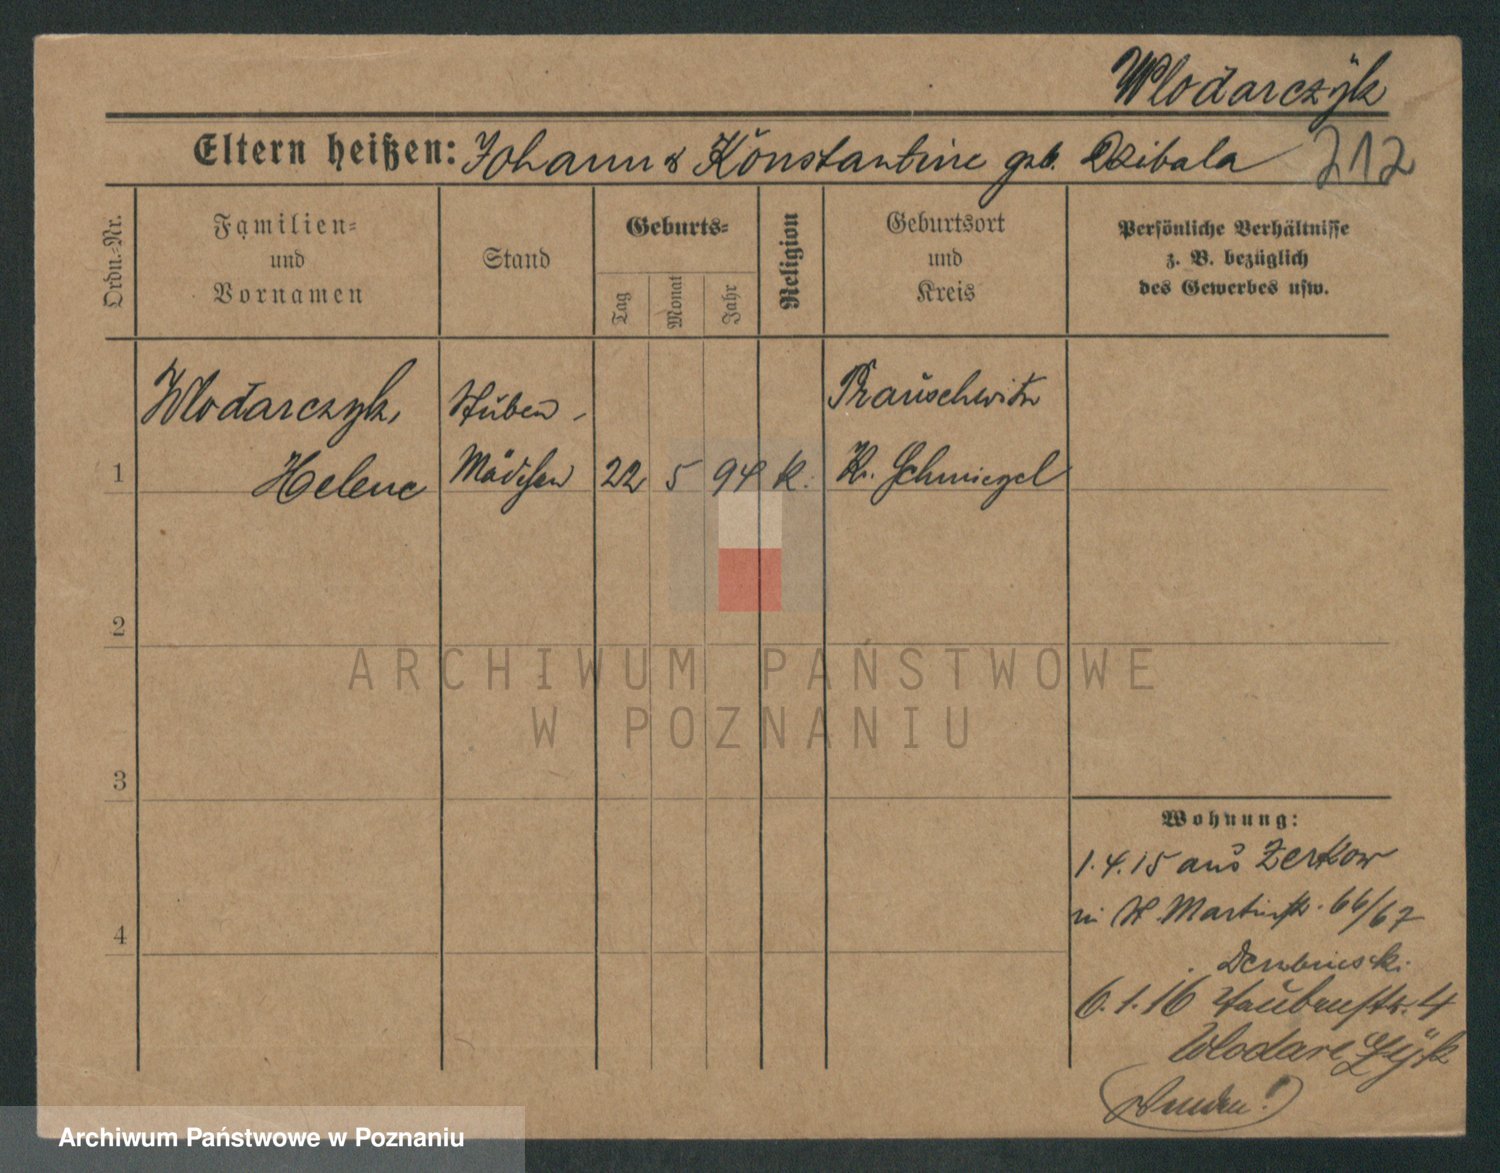 Wlodarczyk
Eltern heißen: Johann & Konstantine geb. Dzibala 212
Ordn.-Nr.
Familien-
und
Vornamen
Stand
Geburts-
Tag
Monat
Jahr
Religion
Geburtsort
und
Kreis
Persönliche Verhältnisse
z. B. bezüglich
des Gewerbes usw.
Wlodarczyk, Stuben- Prauschwitz
1 Helene Mädchen 22 5 94 k. Kr. Schmiegel
2
ARCHIWUM PAŃSTWOWE
W POZNANIU
3
Wohnung:
1.4.15 aus Zerkow
in St. Martinstr. 66/67
4
6.1.16 Taubenstr. 4
Wlodarczyk
Wenden!
Archiwum Państwowe w Poznaniu